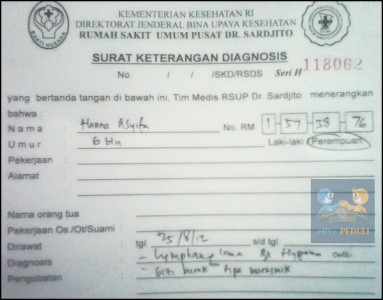 KEMENTERIAN KESEHATAN RI
DIREKTORAT JENDERAL BINA UPAYA KESEHATAN
RUMAH SAKIT UMUM PUSAT DR. SARDJITO
BAKTI HUSADA
SURAT KETERANGAN DIAGNOSIS
No. / / /SKD/RSDS Seri H 118062
yang bertanda tangan di bawah ini, Tim Medis RSUP Dr. Sardjito menerangkan
bahwa :
Nama : Hanna Asyifa No. RM 1-57-58-76
Umur : 6 bln Laki-laki Perempuan
Pekerjaan :
Alamat :
Nama orang tua :
Pekerjaan Os./Ot/Suami :
Dirawat : tgl 25/8/12 s/d tgl
Diagnosis : - Lymphangioma
Pengobatan : - Gizi buruk tipe marasmik
PEDULI